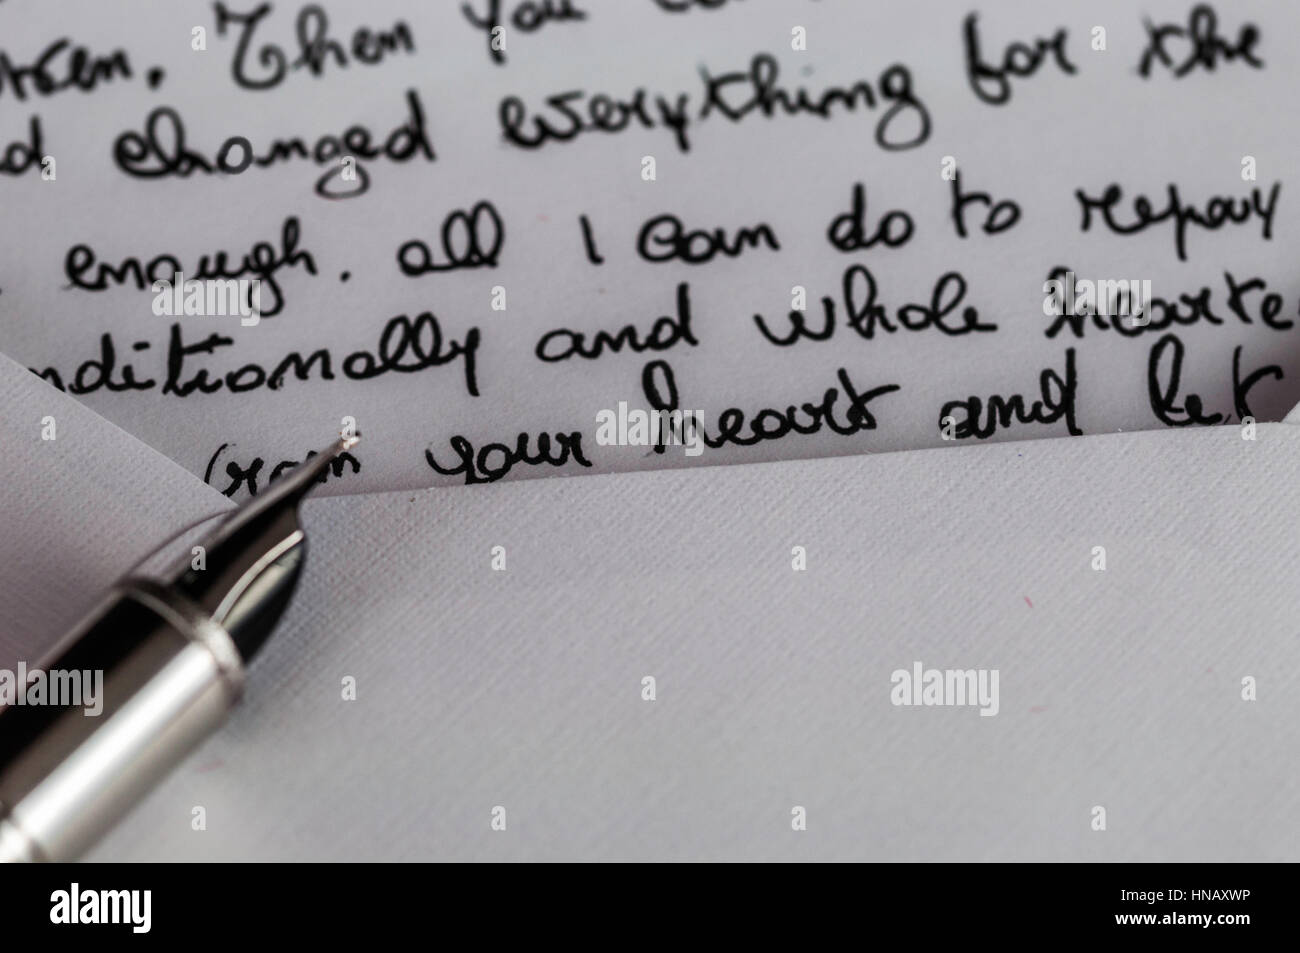 Then you
changed everything for the
enough. all I can do to repay
nditionally and whole hearte
from your heart and let
a
alamy
alamy stock photo
HNAXWP
www.alamy.com